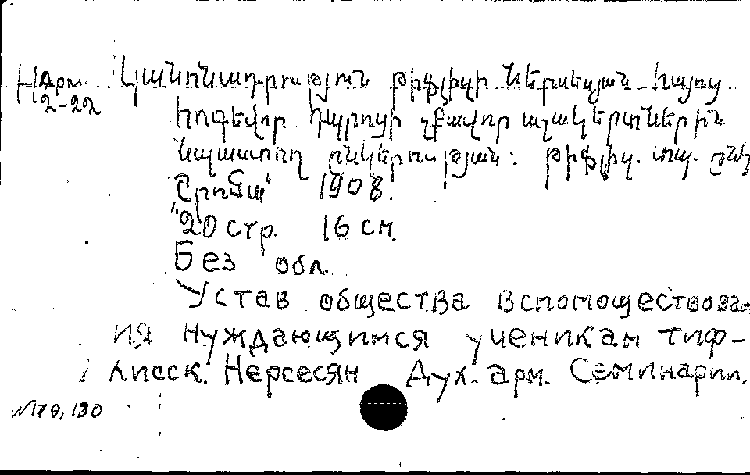 НАрм. Կանոնադրություն Թիֆլիզի Ներսեսյան հայոց
2-22 հոգեվոր դպրոցի չքավոր աշակերտներին
նպաստող ընկերության: Թիֆլիզ. տպ. ընկ
1908.
20 стр. 16 см.
Без обл.
Устав общества вспомоществован
ия нуждающимся ученикам тиф-
лисск. Нерсесян Дух. арм. Семинарии.
№178,130